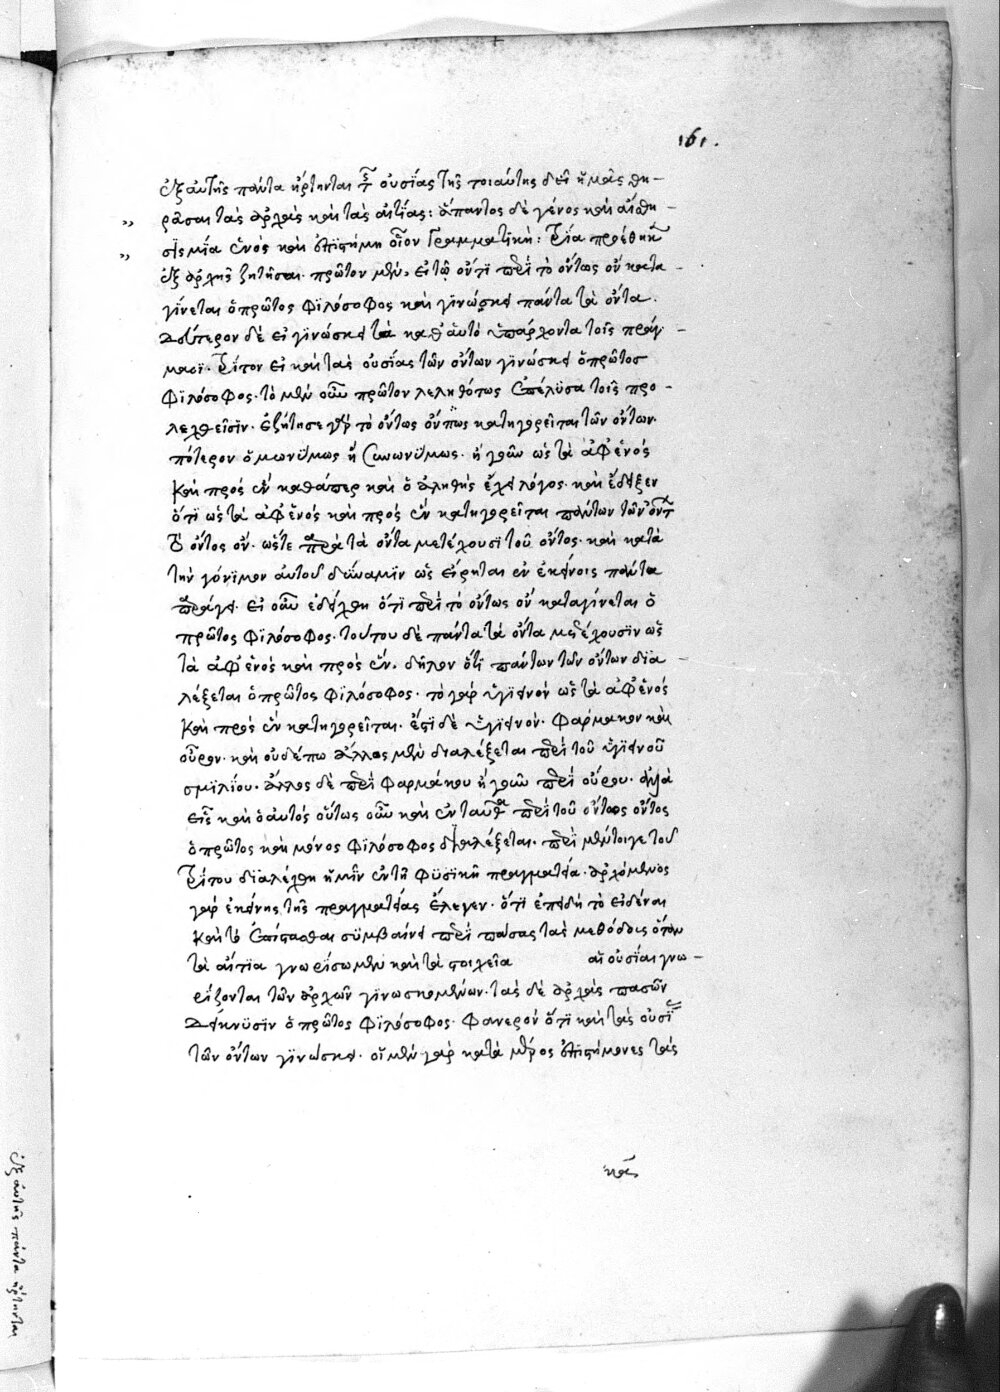 161.
ἐξ αὐτῆς πάντα ἤρτηνται τῆς οὐσίας τῆς τοιαύτης δεῖ ἡμᾶς θη-
ρᾶσαι τὰς ἀρχὰς καὶ τὰς αἰτίας: ἅπαντος δὲ γένος καὶ αἴσθη-
σις μία ἑνὸς καὶ ἐπιστήμη οἷον Γραμματική: τρία προέθηκεν
ἐξ ἀρχῆς ζητῆσαι. πρῶτον μὲν, εἰ τῷ ὄντι περὶ τὸ ὄντως ὂν κατα-
γίνεται ὁ πρῶτος φιλόσοφος καὶ γινώσκει πάντα τὰ ὄντα.
δεύτερον δὲ εἰ γινώσκει τὰ καθ' αὑτὸ ὑπάρχοντα τοῖς πράγ-
μασι. τρίτον εἰ καὶ τὰς οὐσίας τῶν ὄντων γινώσκει ὁ πρῶτος
φιλόσοφος. τὸ μὲν οὖν πρῶτον λεληθότως ἐπέλυσα τοῖς προ-
λεχθεῖσιν. ἐζήτησε γὰρ τὸ ὄντως ὂν πως κατηγορεῖται τῶν ὄντων.
πότερον ὁμωνύμως ἢ συνωνύμως. ἢ γοῦν ὡς τὰ ἀφ' ἑνὸς
καὶ πρὸς ἓν καθάπερ καὶ ὁ ἀληθὴς ἔχει λόγος. καὶ ἔδειξεν
ὅτι ὡς τὰ ἀφ' ἑνὸς καὶ πρὸς ἓν κατηγορεῖται πάντων τῶν ὄντων
τὸ ὄντος ὄν. ὥστε παρὰ τὰ ὄντα μετέχουσι τοῦ ὄντος. καὶ κατὰ
τὴν γόνιμον αὐτοῦ δύναμιν ὡς εἴρηται ἐν ἐκείνοις πάντα
παράγει. εἰ οὖν ἐδείχθη ὅτι περὶ τὸ ὄντως ὂν καταγίνεται ὁ
πρῶτος φιλόσοφος. τούτου δὲ πάντα τὰ ὄντα μετέχουσιν ὡς
τὰ ἀφ' ἑνὸς καὶ πρὸς ἕν. δῆλον ὅτι πάντων τῶν ὄντων δια-
λέξεται ὁ πρῶτος φιλόσοφος. τὸ γὰρ ὑγιεινὸν ὡς τὰ ἀφ' ἑνὸς
καὶ πρὸς ἓν κατηγορεῖται. ἐστὶ δὲ ὑγιεινὸν. φάρμακον καὶ
οὖρον. καὶ οὐδέπω ἄλλος μὲν διαλέξεται περὶ τοῦ ὑγιεινοῦ
σμιλίου. ἄλλος δὲ περὶ φαρμάκου ἢ γοῦν περὶ οὔρου. ἀλλὰ
εἷς καὶ ὁ αὐτός οὕτως οὖν καὶ ἐνταῦθα περὶ τοῦ ὄντως ὄντος
ὁ πρῶτος καὶ μόνος φιλόσοφος διαλέξεται. περὶ μέντοιγε τοῦ
τρίτου διαλέχθη ἡμῖν ἐν τῇ φυσικῇ πραγματείᾳ. ἀρχόμενος
γὰρ ἐκείνης τῆς πραγματείας ἔλεγεν. ὅτι ἐπειδὴ τὸ εἰδέναι
καὶ τὸ ἐπίστασθαι συμβαίνει περὶ πάσας τὰς μεθόδοις ὅταν
τὰ αἴτια γνωρίσωμεν καὶ τὰ στοιχεῖα αἱ οὐσίαι γνω-
ρίζονται τῶν ἀρχῶν γινωσκομένων. τὰς δὲ ἀρχὰς πασῶν
δείκνυσιν ὁ πρῶτος φιλόσοφος. φανερὸν ὅτι καὶ τὰς οὐσίας
τῶν ὄντων γινώσκει. οἱ μὲν γὰρ κατὰ μέρος ἐπιστήμονες τὰς
ἐξ αὐτῆς πάντα ἤρτηνται